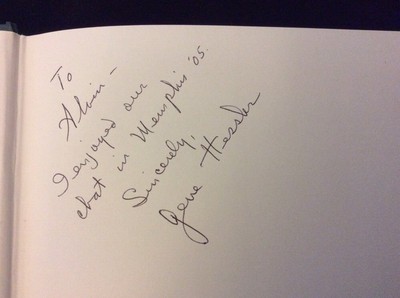 To
Alvin –
I enjoyed our
chat in Memphis '05.
Sincerely,
Gene Hessler